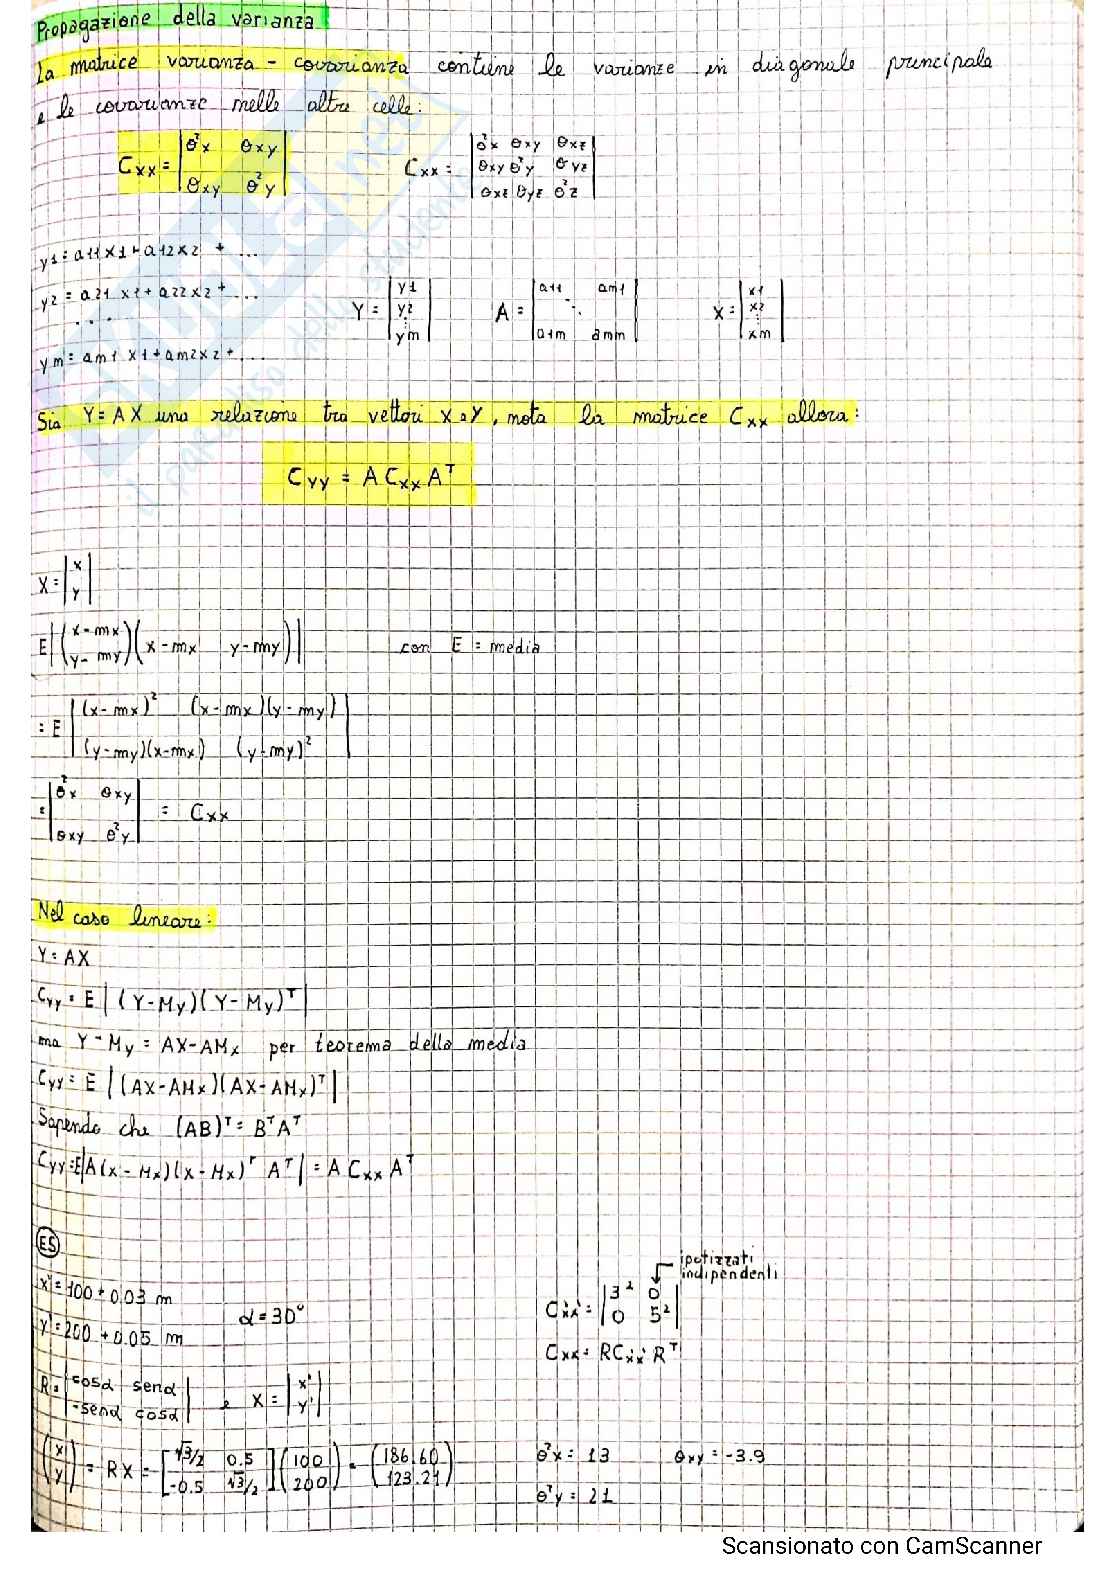 Propagazione della varianza
La matrice varianza - covarianza contiene le varianze in diagonale principale
e le covarianze nelle altre celle:
Cxx = |θ²x θxy| Cxx = |θ²x θxy θxz|
|θxy θ²y| |θxy θ²y θyz|
|θxz θyz θ²z|
y1 = a11 x1 + a12 x2 + ...
y2 = a21 x1 + a22 x2 + ...
...
ym = am1 x1 + am2 x2 + ...
Y = |y1 y2 ⋮ ym| A = |a11 am1 ⋱ a1m amm| X = |x1 x2 ⋮ xm|
Sia Y = AX una relazione tra vettori X e Y, nota la matrice Cxx allora:
Cyy = A Cxx Aᵀ
X = |x y|
E |(x - mx y - my)(x - mx y - my)| con E = media
= E |(x - mx)² (x - mx)(y - my)|
|(y - my)(x - mx) (y - my)²|
= |θ²x θxy| = Cxx
|θxy θ²y|
Nel caso lineare:
Y = AX
Cyy = E |(Y - My)(Y - My)ᵀ|
ma Y - My = AX - AMx per teorema della media
Cyy = E |(AX - AMx)(AX - AMx)ᵀ|
Sapendo che (AB)ᵀ = BᵀAᵀ
Cyy = E|A(x - Mx)(x - Mx)ᵀ Aᵀ| = A Cxx Aᵀ
ES
ipotizzati
indipendenti
x' = 100 + 0.03 m
α = 30°
y' = 200 + 0.05 m
Cx'x' = |3² 0|
|0 5²|
Cxx = R Cx'x' Rᵀ
R = |cosα senα| e X = |x'|
|-senα cosα| |y'|
(x y) = RX = [√3/2 0.5 -0.5 √3/2] (100 200) = (186.60 123.21)
θ²x = 13 θxy = -3.9
θ²y = 21
Scansionato con CamScanner